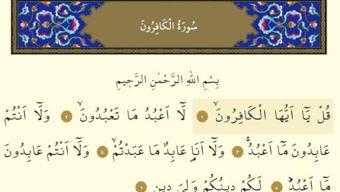 سُورَةُ الْكَافِرُونَ
بِسْمِ اللهِ الرَّحْمٰنِ الرَّحِيمِ
قُلْ يَٓا اَيُّهَا الْكَافِرُونَۙ ﴿١﴾ لَٓا اَعْبُدُ مَا تَعْبُدُونَۙ ﴿٢﴾ وَلَٓا اَنْتُمْ
عَابِدُونَ مَٓا اَعْبُدُۚ ﴿٣﴾ وَلَٓا اَنَا۬ عَابِدٌ مَا عَبَدْتُمْۙ ﴿٤﴾ وَلَٓا اَنْتُمْ عَابِدُونَ
مَٓا اَعْبُدُۜ ﴿٥﴾ لَكُمْ دِينُكُمْ وَلِيَ دِينِ ﴿٦﴾